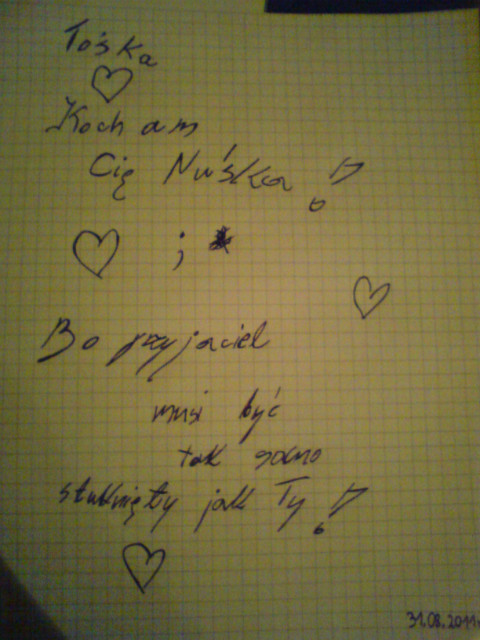 Tośka
♡
Kocham
Cię Nuśka!
♡ ;*
♡
Bo przyjaciel
musi być
tak samo
stuknięty jak Ty!
♡
31.08.2011r.